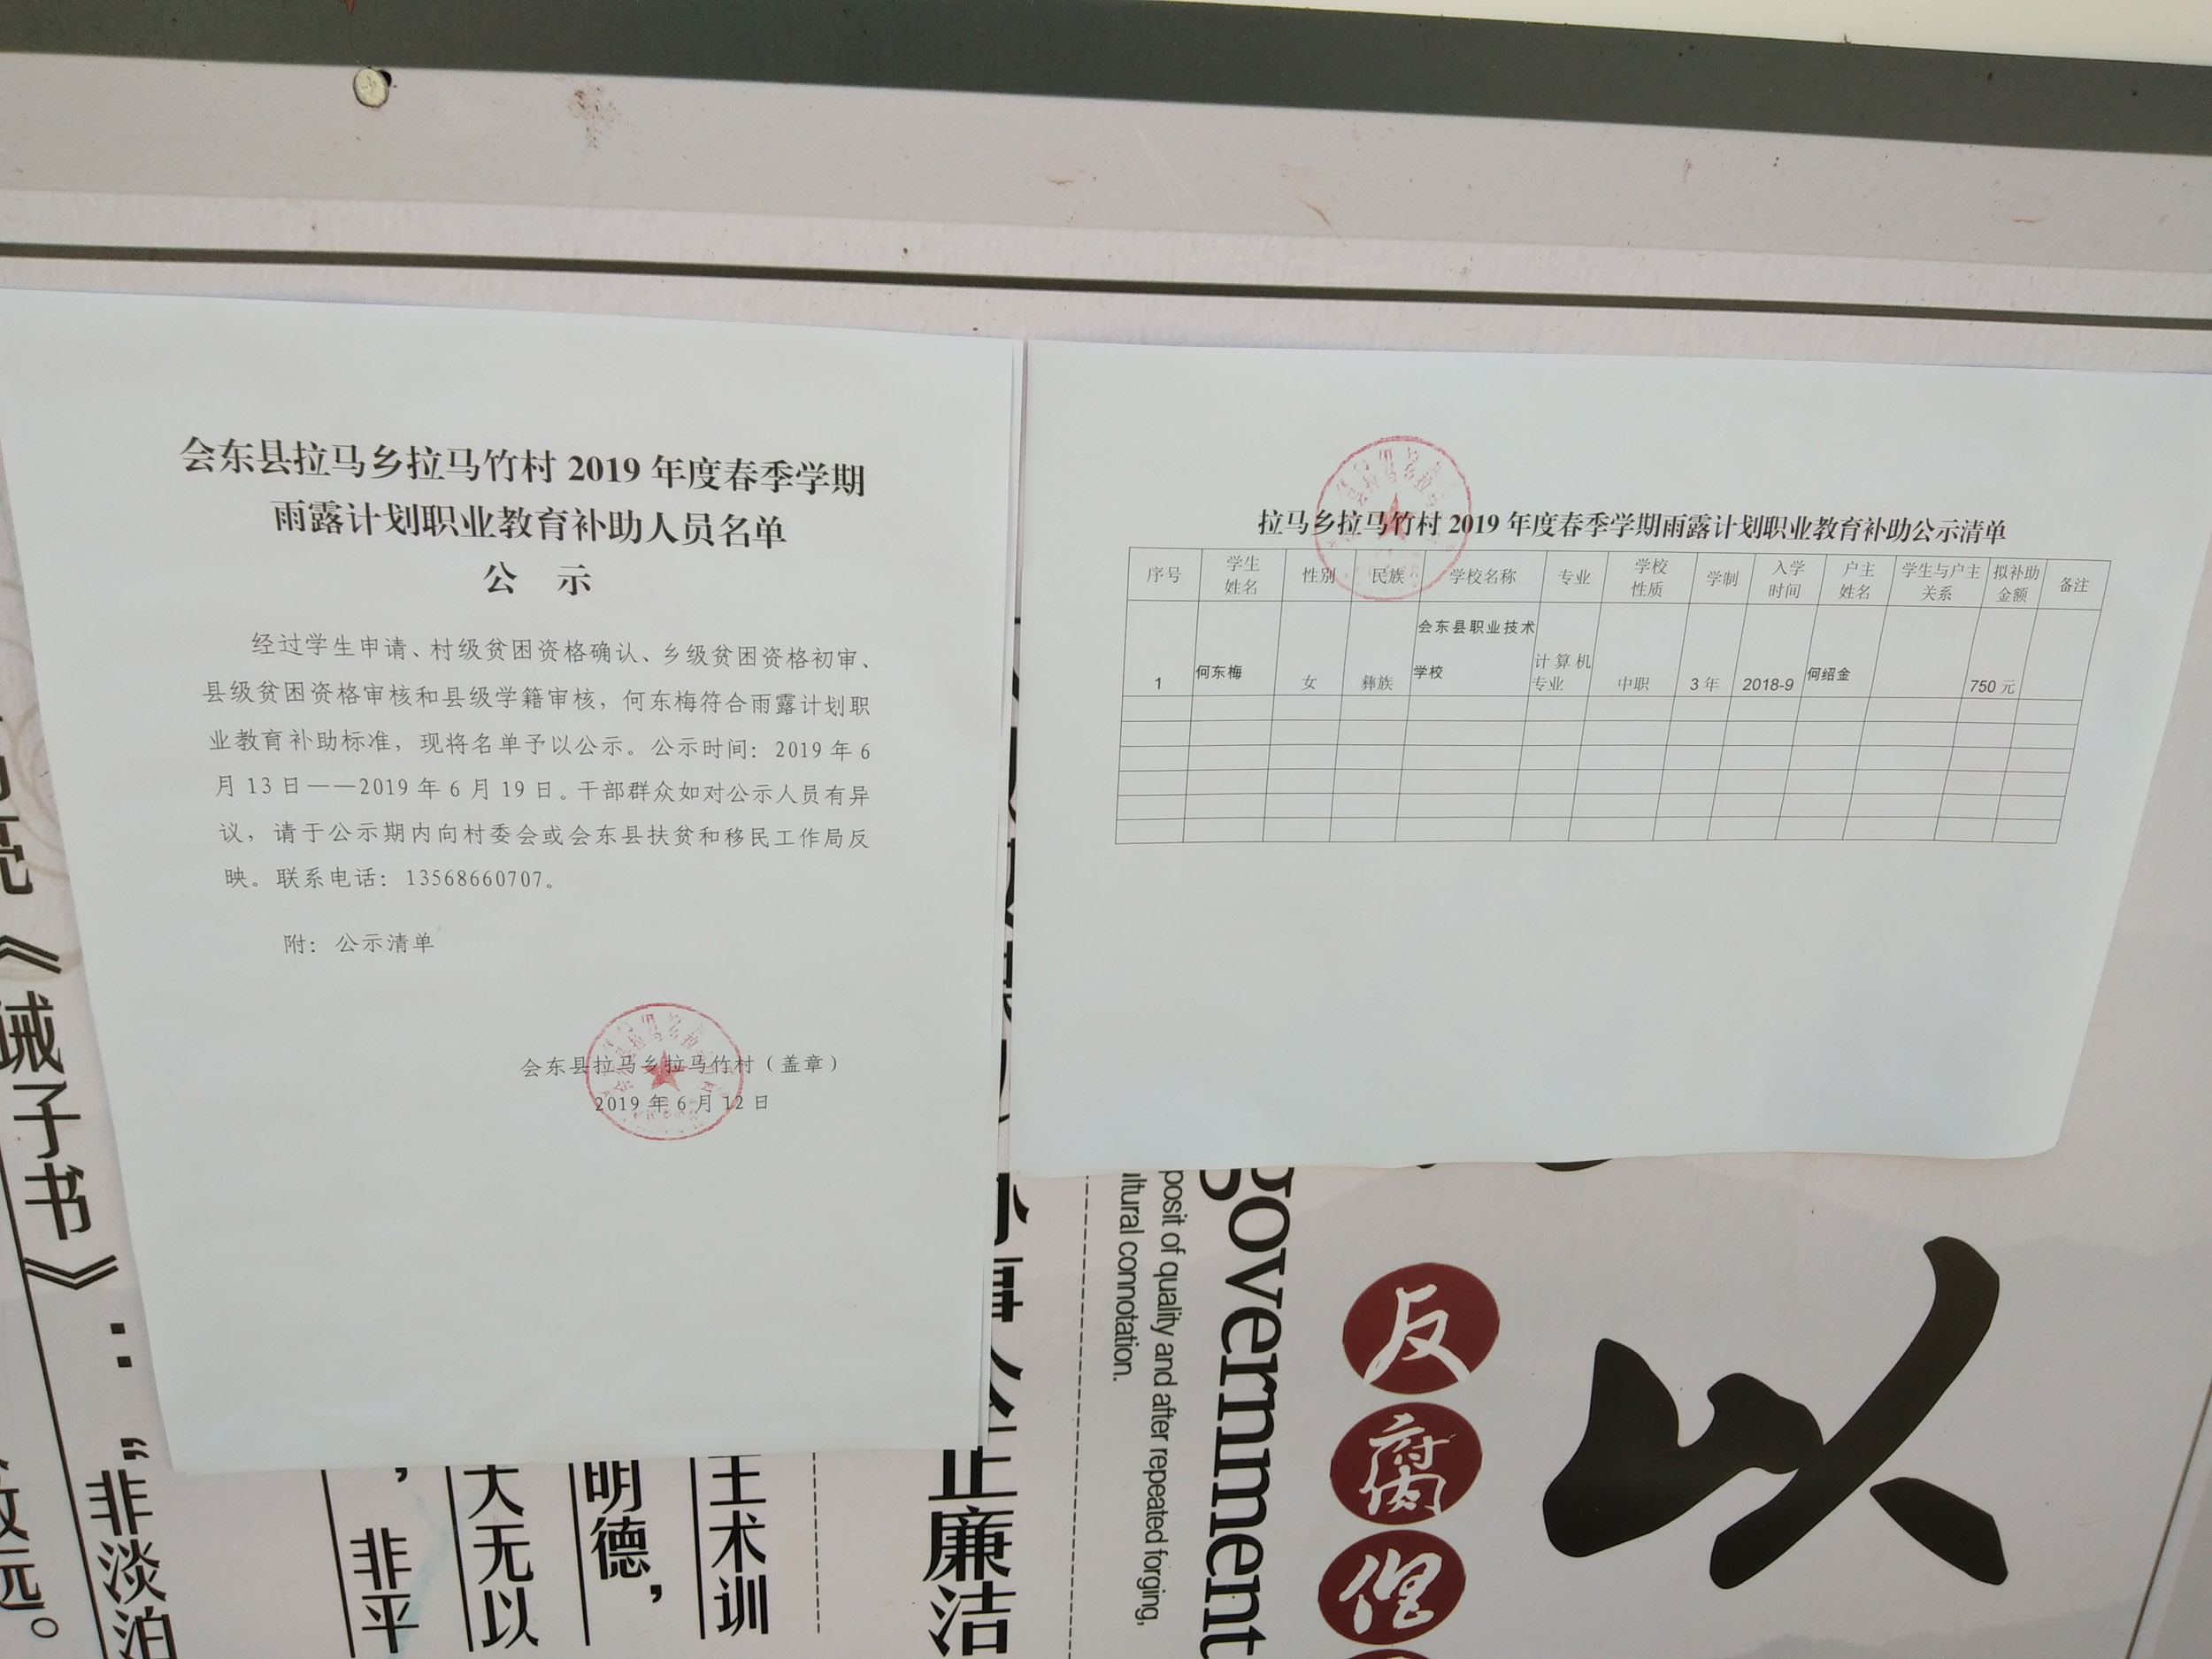 会东县拉马乡拉马竹村 2019 年度春季学期
雨露计划职业教育补助人员名单
公 示
经过学生申请、村级贫困资格确认、乡级贫困资格初审、
县级贫困资格审核和县级学籍审核，何东梅符合雨露计划职
业教育补助标准，现将名单予以公示。公示时间：2019 年 6
月 13 日——2019 年 6 月 19 日。干部群众如对公示人员有异
议，请于公示期内向村委会或会东县扶贫和移民工作局反
映。联系电话：13568660707。
附：公示清单
会东县拉马乡拉马竹村（盖章）
2019 年 6 月 12 日
拉马乡拉马竹村 2019 年度春季学期雨露计划职业教育补助公示清单
序号 学生姓名 性别 民族 学校名称 专业 学校性质 学制 入学时间 户主姓名 学生与户主关系 拟补助金额 备注
1 何东梅 女 彝族 会东县职业技术学校 计算机专业 中职 3 年 2018-9 何绍金 750 元
诫子书》：“非淡泊
，非平
大无以
明德，
正廉洁
posit of quality and after repeated forging,
ltural connotation.
government
反
腐
倡
以